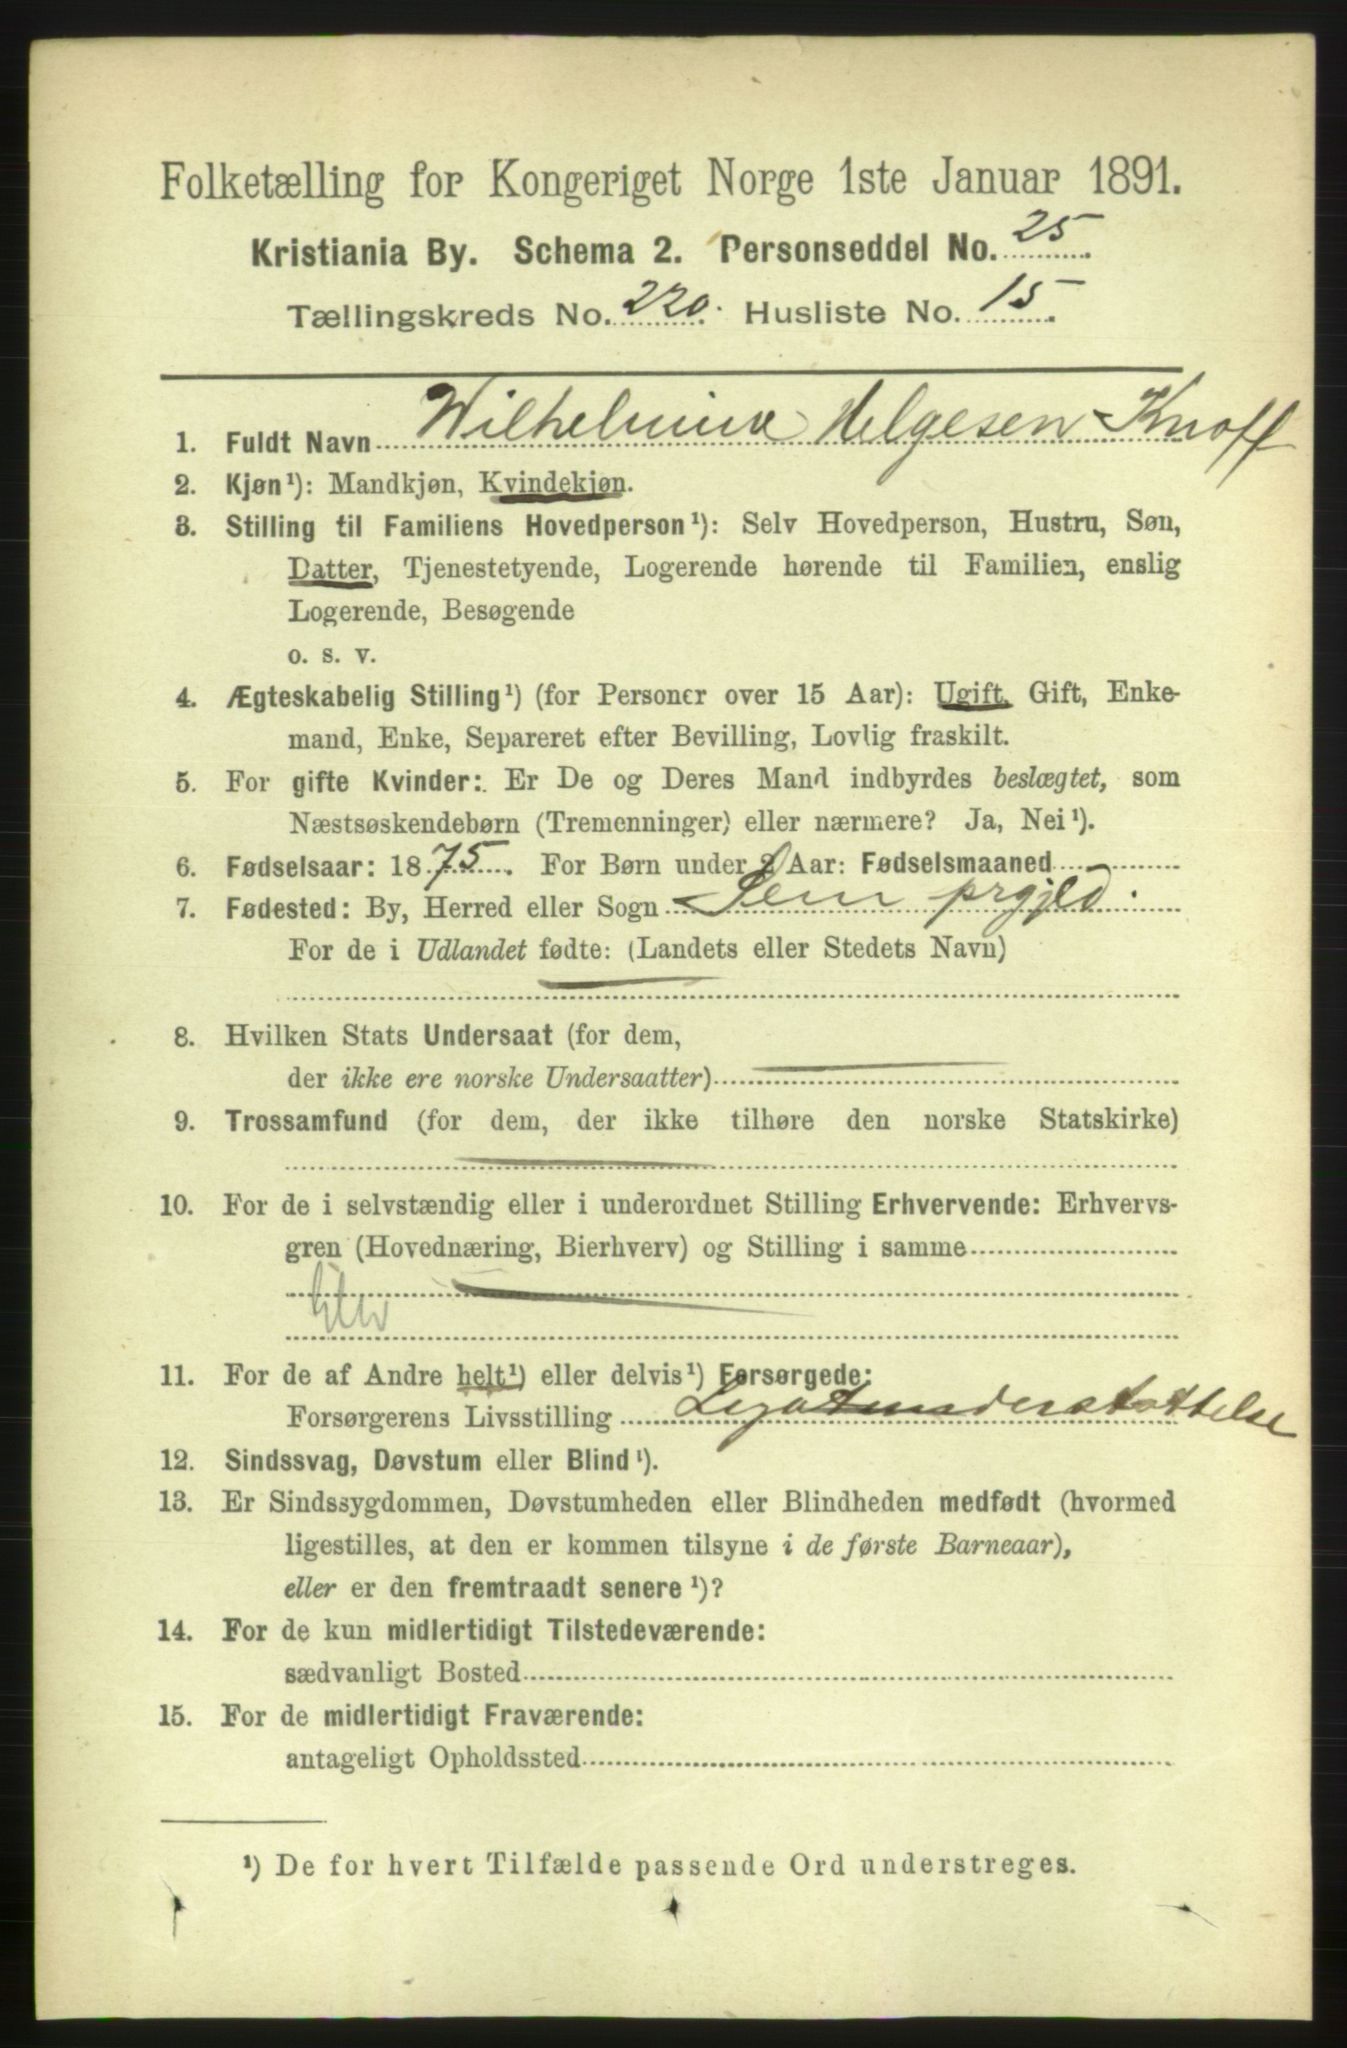 Folketælling for Kongeriget Norge 1ste Januar 1891.
Kristiania By. Schema 2. Personseddel No. 25
Tællingskreds No. 220. Husliste No. 15
1. Fuldt Navn Wilhelmine Helgesen Knoff
2. Kjøn¹): Mandkjøn, Kvindekjøn.
3. Stilling til Familiens Hovedperson¹): Selv Hovedperson, Hustru, Søn,
Datter, Tjenestetyende, Logerende hørende til Familien, enslig
Logerende, Besøgende
o. s. v.
4. Ægteskabelig Stilling¹) (for Personer over 15 Aar): Ugift, Gift, Enke-
mand, Enke, Separeret efter Bevilling, Lovlig fraskilt.
5. For gifte Kvinder: Er De og Deres Mand indbyrdes beslægtet, som
Næstsøskendebørn (Tremenninger) eller nærmere? Ja, Nei¹).
6. Fødselsaar: 1875. For Børn under 2 Aar: Fødselsmaaned
7. Fødested: By, Herred eller Sogn Sem prgjeld.
For de i Udlandet fødte: (Landets eller Stedets Navn)
8. Hvilken Stats Undersaat (for dem,
der ikke ere norske Undersaatter)
9. Trossamfund (for dem, der ikke tilhøre den norske Statskirke)
10. For de i selvstændig eller i underordnet Stilling Erhvervende: Erhvervs-
gren (Hovednæring, Bierhverv) og Stilling i samme
Elev
11. For de af Andre helt¹) eller delvis¹) Forsørgede:
Forsørgerens Livsstilling Legatunderstøttelse
12. Sindssvag, Døvstum eller Blind¹).
13. Er Sindssygdommen, Døvstumheden eller Blindheden medfødt (hvormed
ligestilles, at den er kommen tilsyne i de første Barneaar),
eller er den fremtraadt senere¹)?
14. For de kun midlertidigt Tilstedeværende:
sædvanligt Bosted
15. For de midlertidigt Fraværende:
antageligt Opholdssted
¹) De for hvert Tilfælde passende Ord understreges.